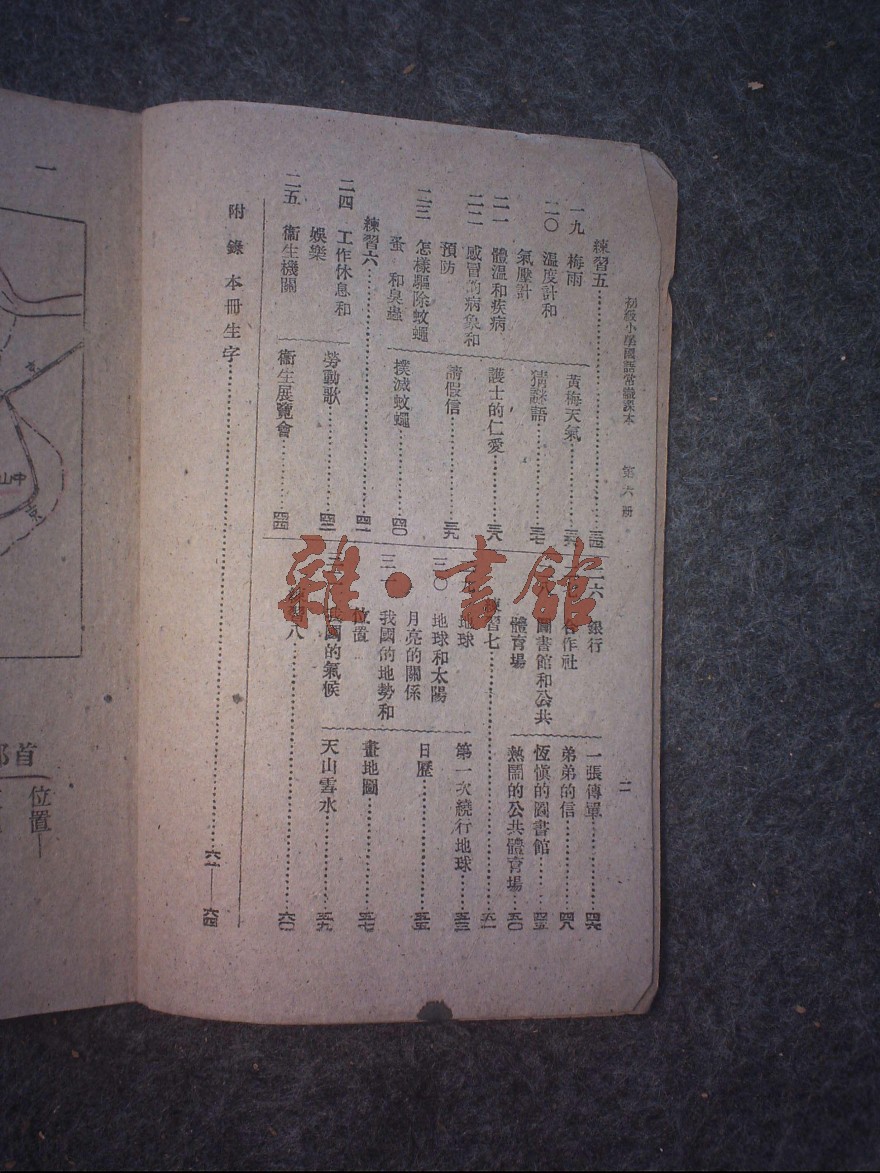 初級小學國語常識課本 第六册
二
練習五……三四
一九 梅雨 黃梅天氣……三六
二〇 溫度計和
氣壓計 猜謎語……三七
二一 體溫和疾病 護士的仁愛……三八
二二 感冒的病象和
預防 請假信……三九
二三 怎樣驅除蚊蠅
蚤 和臭蟲 撲滅蚊蠅……四〇
練習六……四一
二四 工作休息和
娛樂 勞動歌……四二
二五 衞生機關 衞生展覽會……四四
二六 銀行 一張傳單……四六
合作社 弟弟的信……四八
圖書館和公共 恆愼的圖書館
體育場 熱鬧的公共體育場……五〇
練習七……五一
地球 第一次繞行地球……五三
三〇 地球和太陽
月亮的關係 日歷……五五
我國的地勢和
位置 畫地圖……五七
我國的氣候 天山雪水……五九
練習八……六〇
附錄 本冊生字……六一—六四
雜·書館
一
中山
首都
位置—